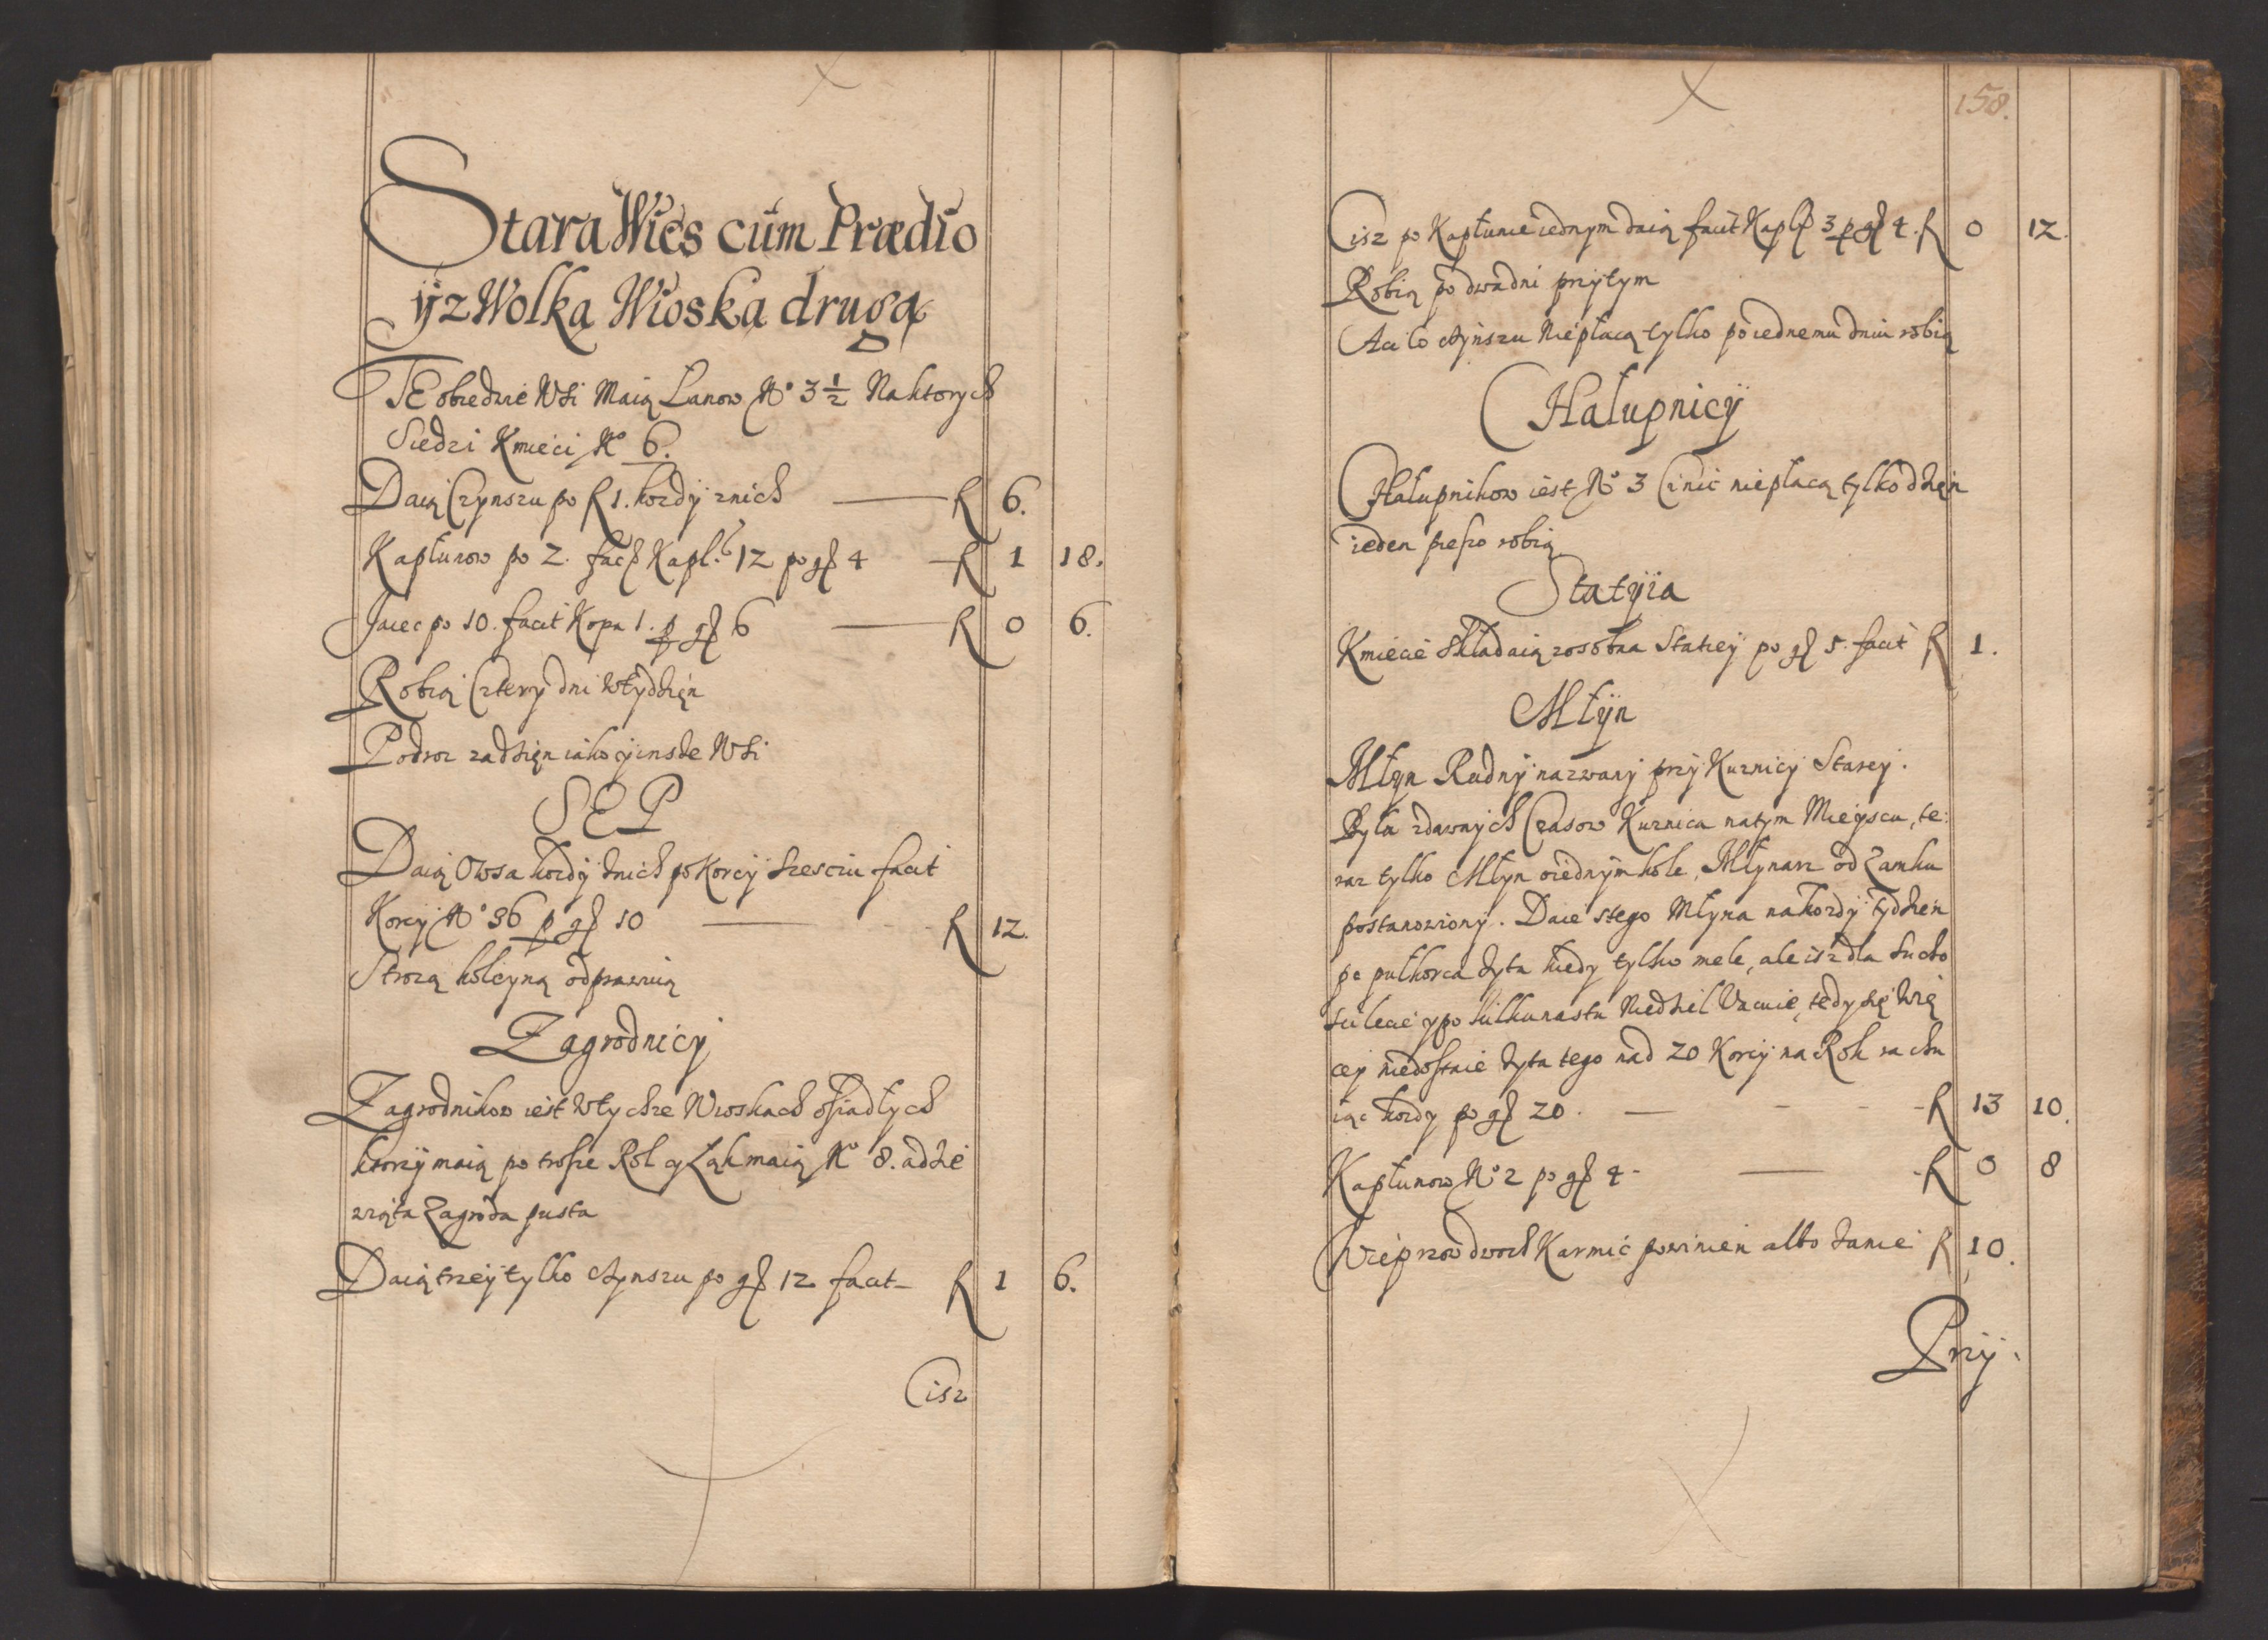 Stara Wies cum Prædio
ÿ z Wolką Wioską drugą
TE obiedwie Wsi Maią Lanow No 3 1/2 Na ktorych
Siedzi Kmieci No 6.
Daią Czynszu po R 1. kozdÿ znich R 6.
Kapłunow po 2. Kapl. 12 po gſ 4 R 1 18.
Jaiec po 10. facit Kopa 1. p gſ 6 R 0 6.
Robią Cztery dni wtydzięn
Podroz zadzięn iako ÿ insze Wsi
SEP
Daią Owsa kozdÿ znich po Korcÿ szesciu facit
Korcÿ No 36 p gſ 10 R 12.
Strozą koleyną odprawuią
Zagrodnicÿ
Zagrodnikow iest wtychze Wioskach osiadłych
ktorzÿ maią po trosze Rol y Ląk maią No 8. adzie
wiąta Zagroda pusta
Daią trzeÿ tylko czynszu po gſ 12 facit R 1 6.
Cisz
158.
Cisz po Kapłunie iednym daią facit Kapł 3 p gſ 4. R 0 12.
Robią po dwa dni przytym
Aci co czynszu Niepłacą tylko po iednemu dniu robią
Hałupnicÿ
Hałupnikow iest No 3 Ci nic niepłacą tylko dzięn
ieden pieszo robią
Statÿia
Kmiecie składaią zosobna Statiey po gſ 5. facit R 1.
Młÿn
Młyn Rudnÿ nazwanÿ przÿ Kuznicÿ Starey.
Byla zdawnych Czasow Kuznica natym Mieyscu, te:
raz tylko Młyn oiednÿm kole, Młynarz od Zamku
postanowiony. Daie stego Młyna nakozdÿ tydzien
po pułkorca zyta kiedy tylko mele, ale isz dla sucho
sci lecie y po kilkunastu Niedziel Uzanie, tedy się wię
cej niedostaie zyta tego nad 20 Korcÿ na Rok rachu
iąc kozdy po gſ 20. R 13 10.
Kapłunow No 2 po gſ 4 R 0 8
Wieprzow dwoch Karmić powinien albo danie R 10.
Przÿ.